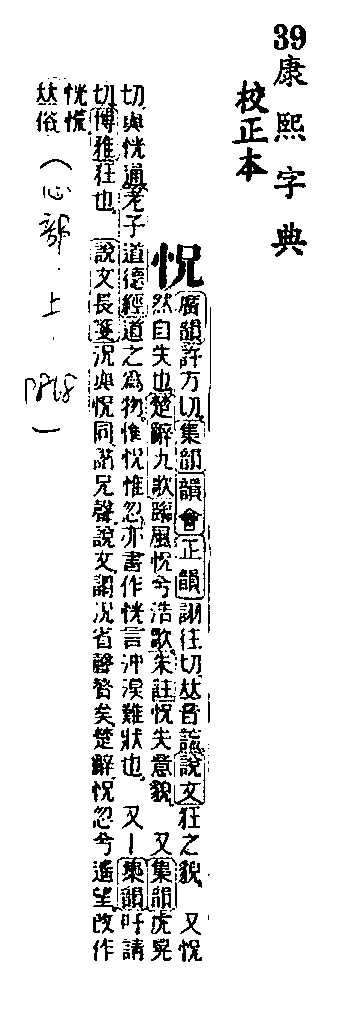 39康熙字典
校正本
怳
廣韻許方切集韻韻會正韻詡往切𠀤音謊說文狂之貌又怳
然自失也楚辭九歌臨風怳兮浩歌朱註怳失意貌又集韻虎晃
切與恍通老子道德經道之爲物惟怳惟忽亦書作恍言沖漠難狀也又集韻呼請
切博雅狂也說文長箋況與怳同諧兄聲說文謂况省聲瞀矣楚辭怳忽兮遙望改作
恍慌𠀤俗
(心部.上.P868)